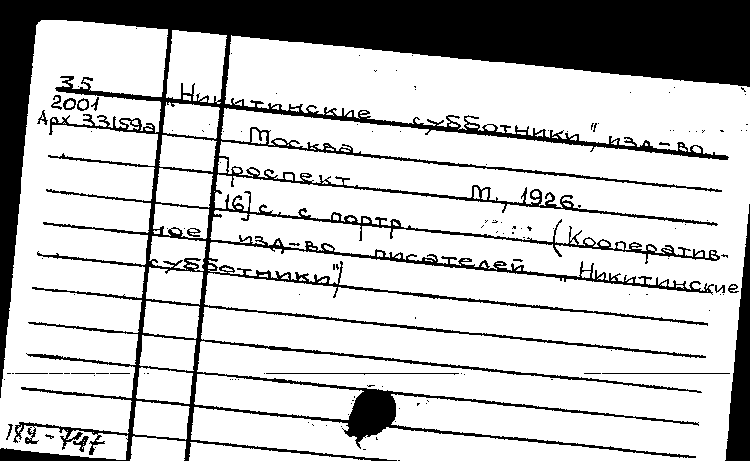 35
2001
Арх. 33159а
„Никитинские субботники", изд-во.
Москва.
Проспект. М., 1926.
[16] с. с портр. (Кооператив-
ное изд-во писателей „Никитинские
субботники")
182-747